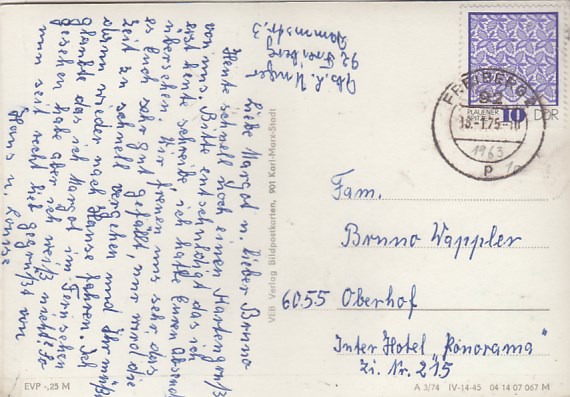 Abs. L. Unger
92 Freiberg
Liebe Margot u. lieber Bruno
Heute schnell noch einen Kartengruß
von uns. Bitte entschuldigt das ich
erst heute schreibe ich hatte Euren Absender
übersehen. Wir freuen uns sehr das
es Euch sehr gut gefällt, nur wird die
Zeit zu schnell vergehen und Ihr müßt
dann wieder nach Hause fahren. Ich
glaube das ich Margot im Fernsehen
gesehen habe aber ich weiß nicht. So
nun seit recht lieb gegrüßt von
Hans u.
VEB Verlag Bildpostkarten, 901 Karl-Marx-Stadt
FREIBERG
92
-1.75-
1963
p
PLAUENER
SPITZE
10
DDR
Fam.
Bruno Wappler
6055 Oberhof
Inter Hotel "Panorama"
Zi. Nr. 215
EVP -,25 M
A 3/74 IV-14-45 04 14 07 067 M